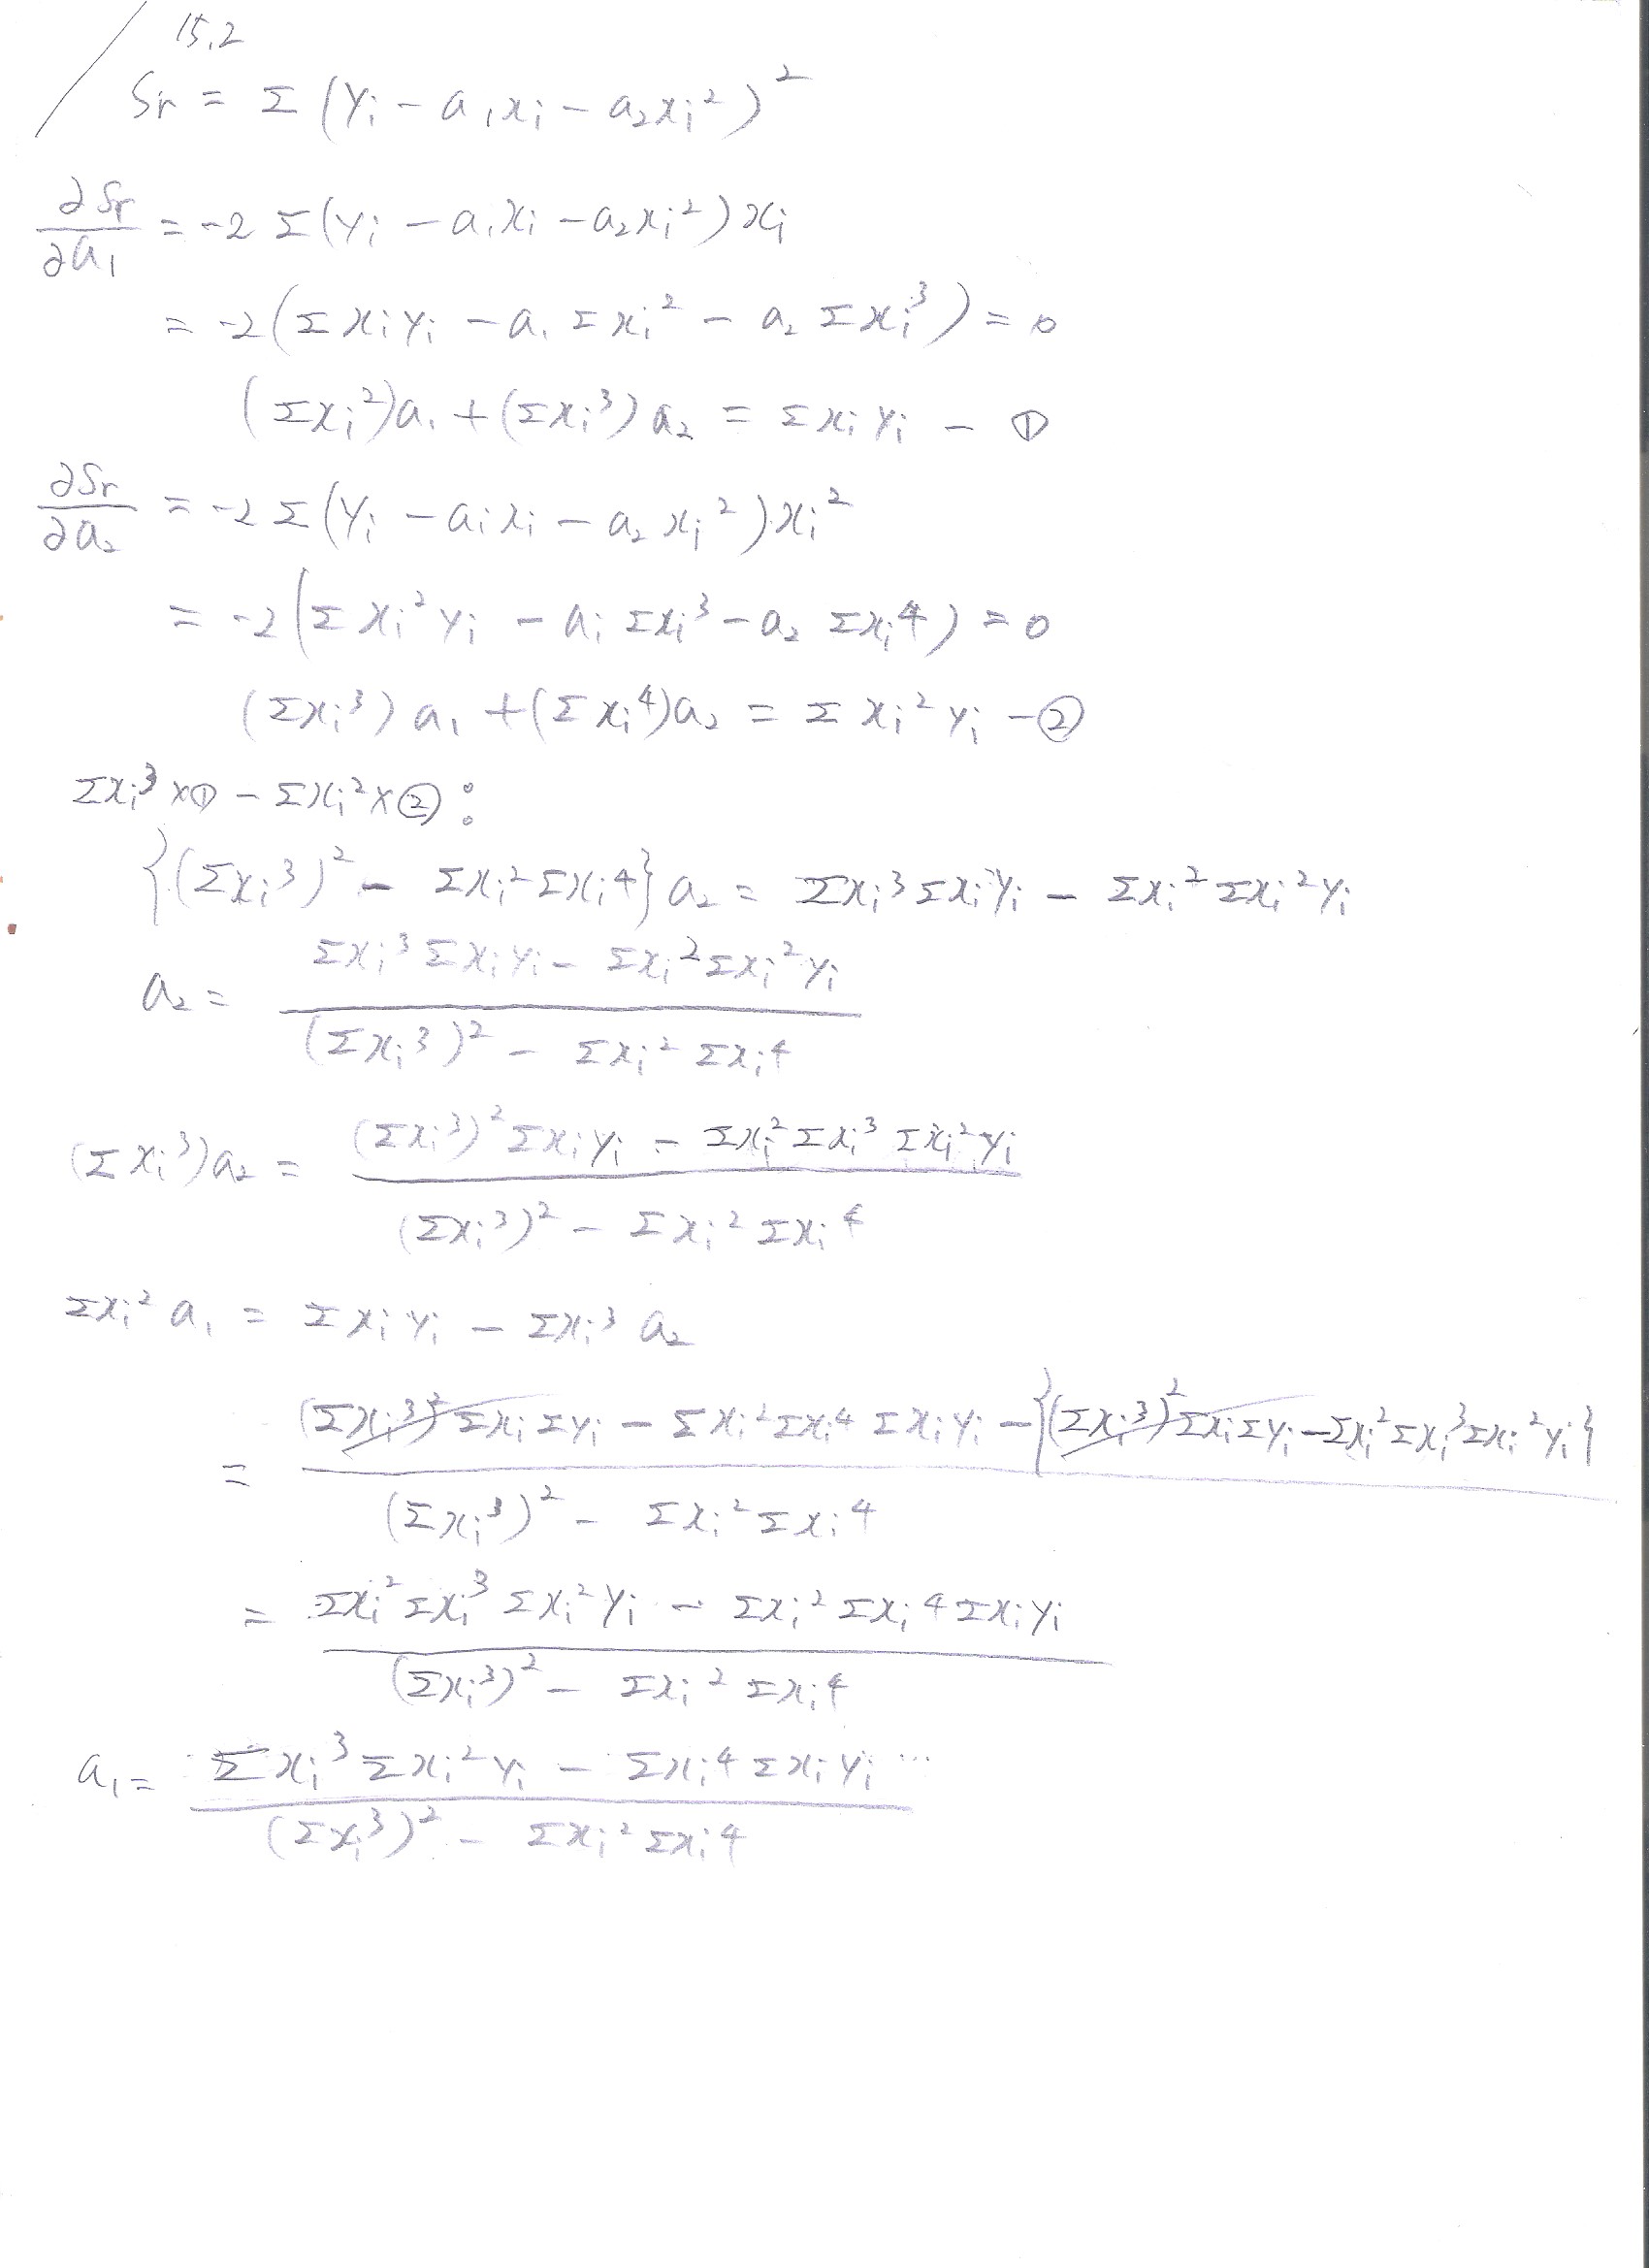 15.2
Sr = Σ (yi - a1xi - a2xi²)²
∂Sr/∂a1 = -2 Σ (yi - a1xi - a2xi²) xi
= -2 (Σxiyi - a1 Σxi² - a2 Σxi³) = 0
(Σxi²)a1 + (Σxi³) a2 = Σxiyi - ①
∂Sr/∂a2 = -2 Σ (yi - aixi - a2xi²) xi²
= -2 (Σxi²yi - ai Σxi³ - a2 Σxi⁴) = 0
(Σxi³) a1 + (Σxi⁴)a2 = Σxi²yi - ②
Σxi³ × ① - Σxi² × ② :
{(Σxi³)² - Σxi²Σxi⁴} a2 = Σxi³Σxiyi - Σxi²Σxi²yi
a2 = (Σxi³Σxiyi - Σxi²Σxi²yi) / ((Σxi³)² - Σxi²Σxi⁴)
(Σxi³)a2 = ((Σxi³)²Σxiyi - Σxi²Σxi³Σxi²yi) / ((Σxi³)² - Σxi²Σxi⁴)
Σxi² a1 = Σxiyi - Σxi³ a2
= ((Σxi³)²ΣxiΣyi - Σxi²Σxi⁴Σxiyi - {(Σxi³)²ΣxiΣyi - Σxi²Σxi³Σxi²yi}) / ((Σxi³)² - Σxi²Σxi⁴)
= (Σxi²Σxi³Σxi²yi - Σxi²Σxi⁴Σxiyi) / ((Σxi³)² - Σxi²Σxi⁴)
a1 = (Σxi³Σxi²yi - Σxi⁴Σxiyi) / ((Σxi³)² - Σxi²Σxi⁴)